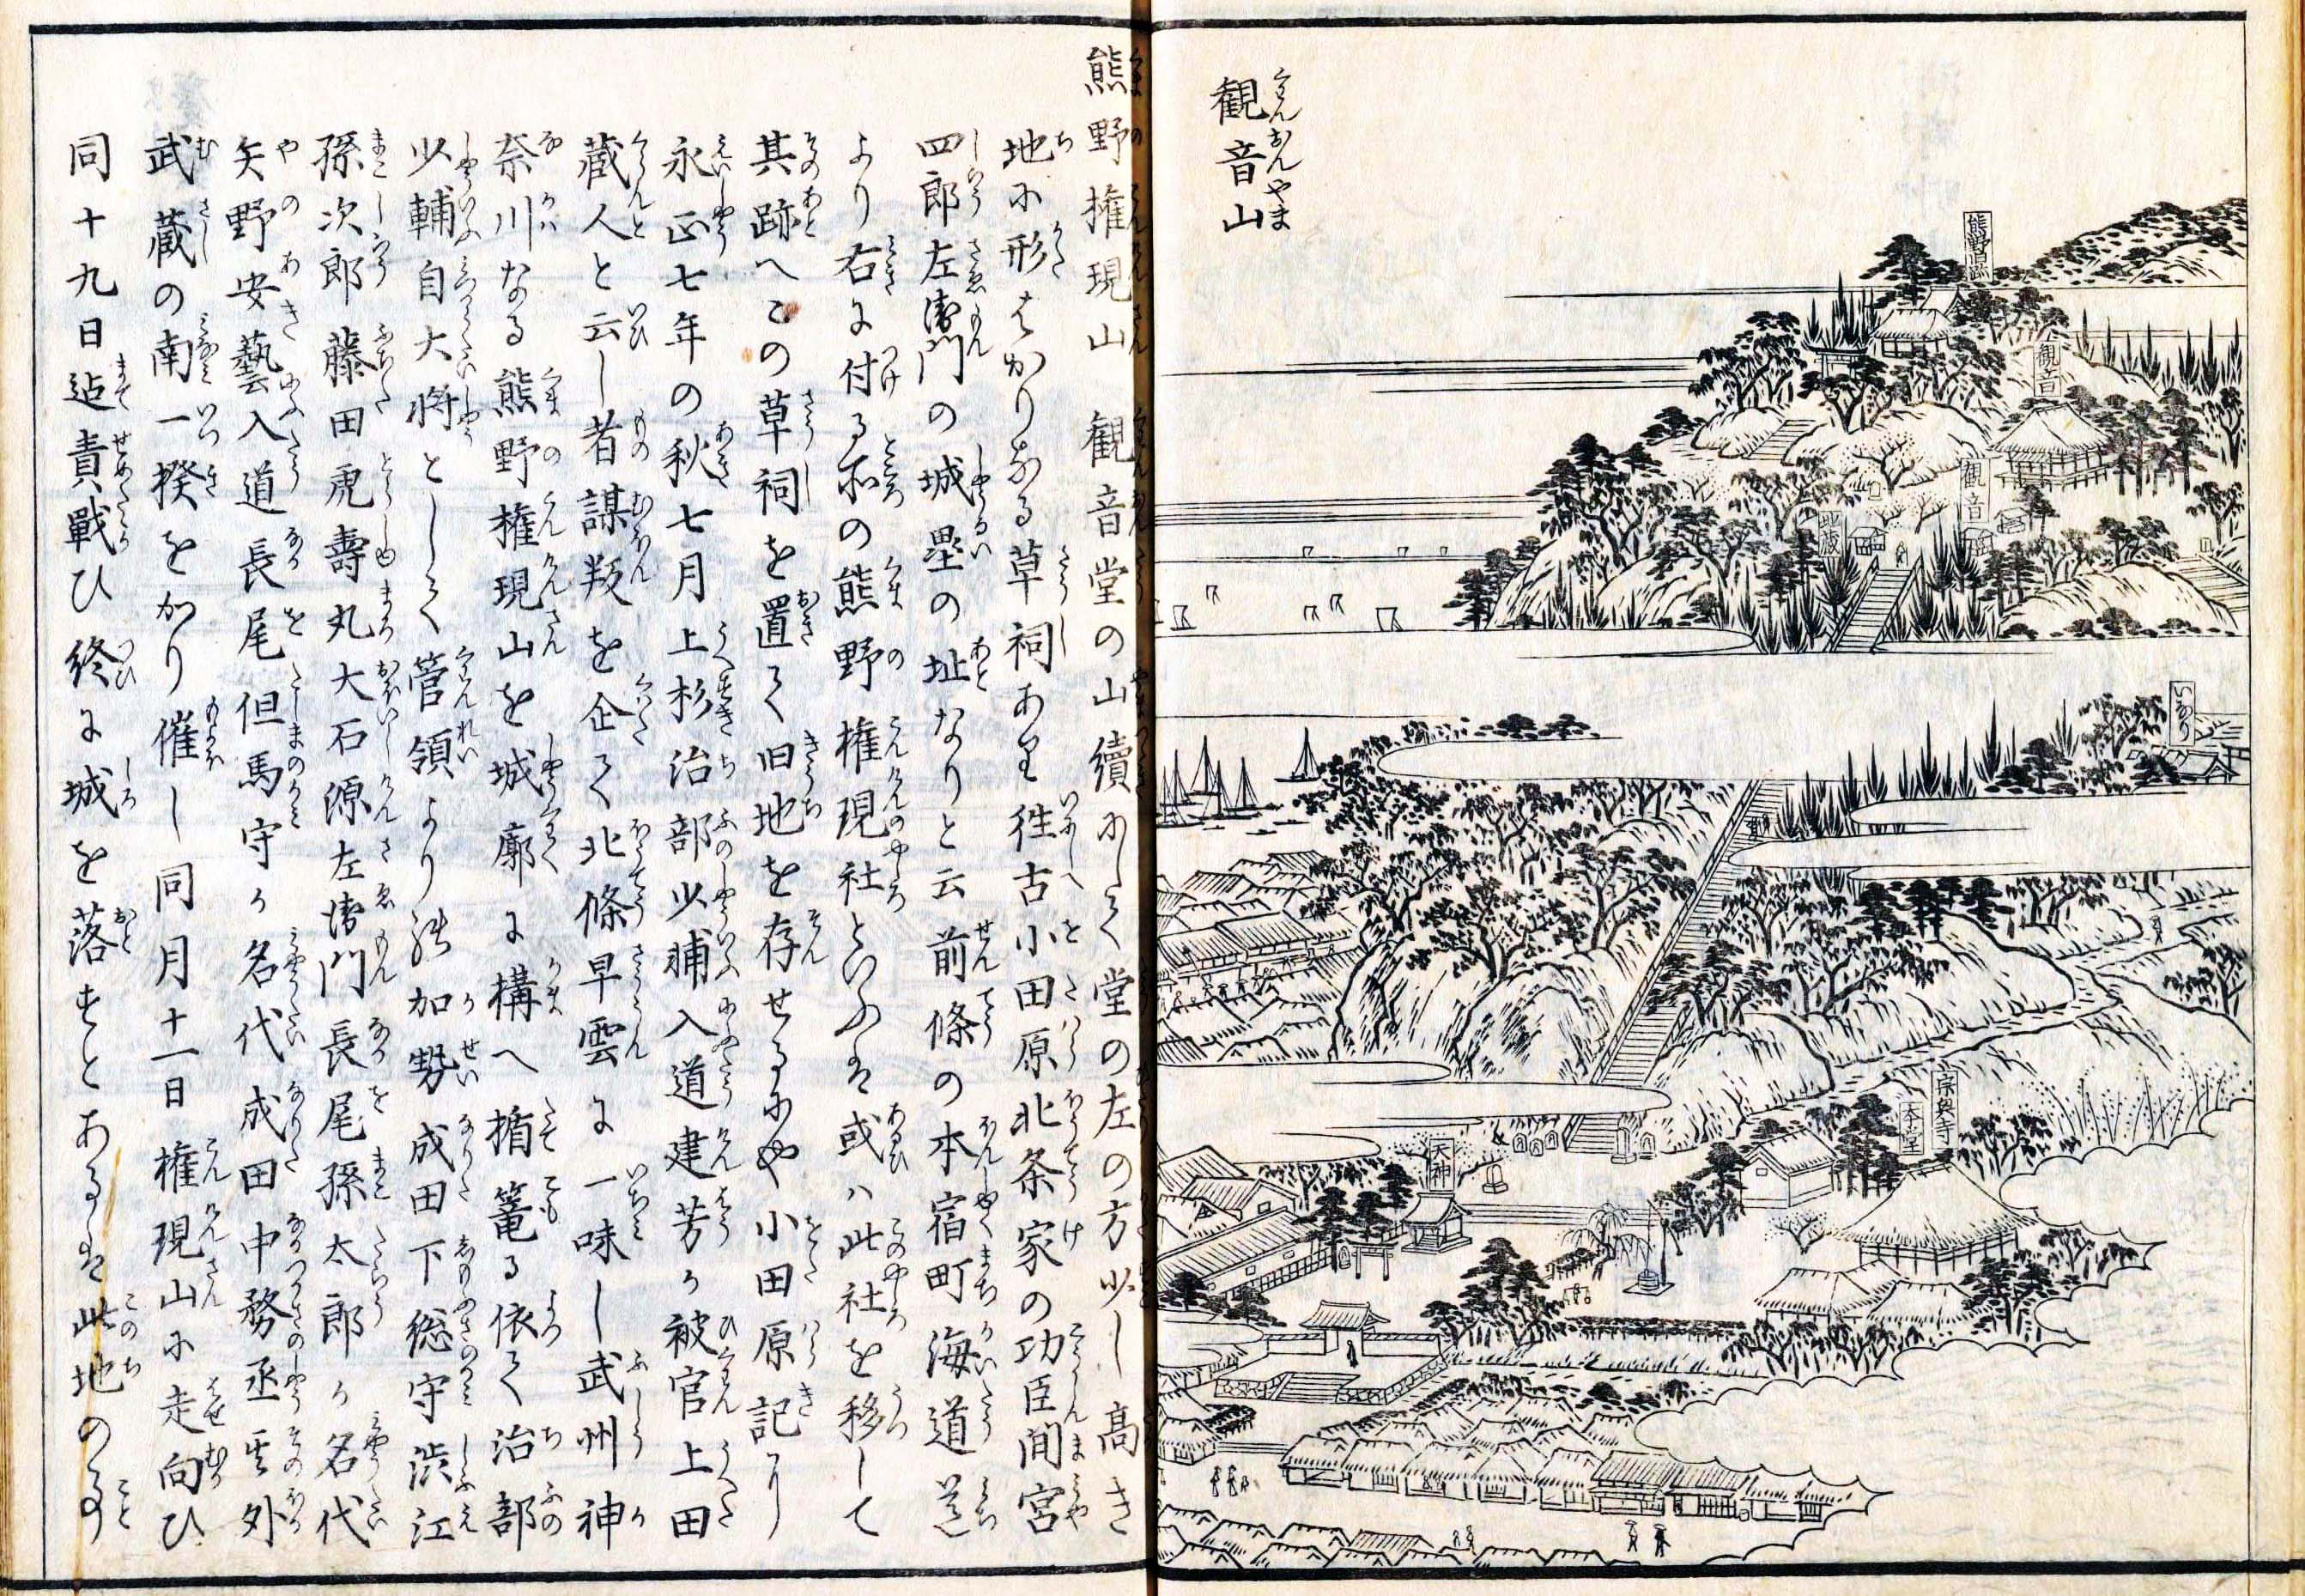 観音山
くわんおんやま
熊野旧跡
観音
観音
地蔵
いなり
宗興寺
本堂
天神
熊野権現山 観音堂の山續にして堂の左の方少し高き
地に形ばかりなる草祠あり往古小田原北条家の功臣間宮
四郎左衛門の城塁の址なりと云前條の本宿町海道道
より右に付る所の熊野権現社といふは或ハ此社を移して
其跡へこの草祠を置て旧地を存せるにや小田原記に
永正七年の秋七月上杉治部少輔入道建芳か被官上田
蔵人と云し者謀叛を企て北條早雲に一味し武州神
奈川なる熊野権現山を城廓に構へ楯篭る依て治部
少輔自大将として管領より御加勢成田下総守渋江
孫次郎藤田虎壽丸大石源左衛門長尾孫太郎か名代
矢野安藝入道長尾但馬守か名代成田中務丞其外
武蔵の南一揆をかり催し同月十一日権現山に走向ひ
同十九日迠責戰ひ終に城を落すとあるは此地の事